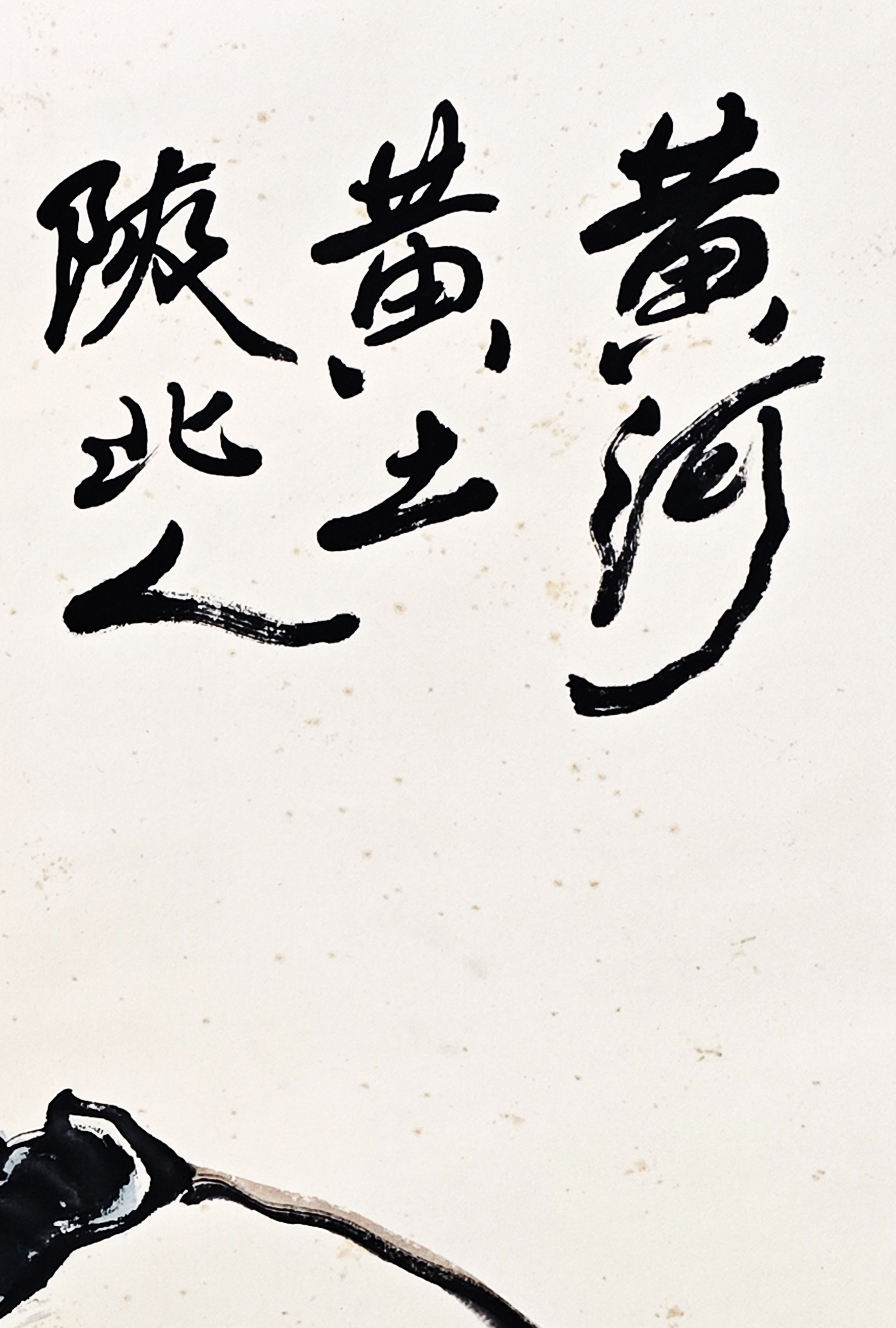 黄河
黄土
陝北人